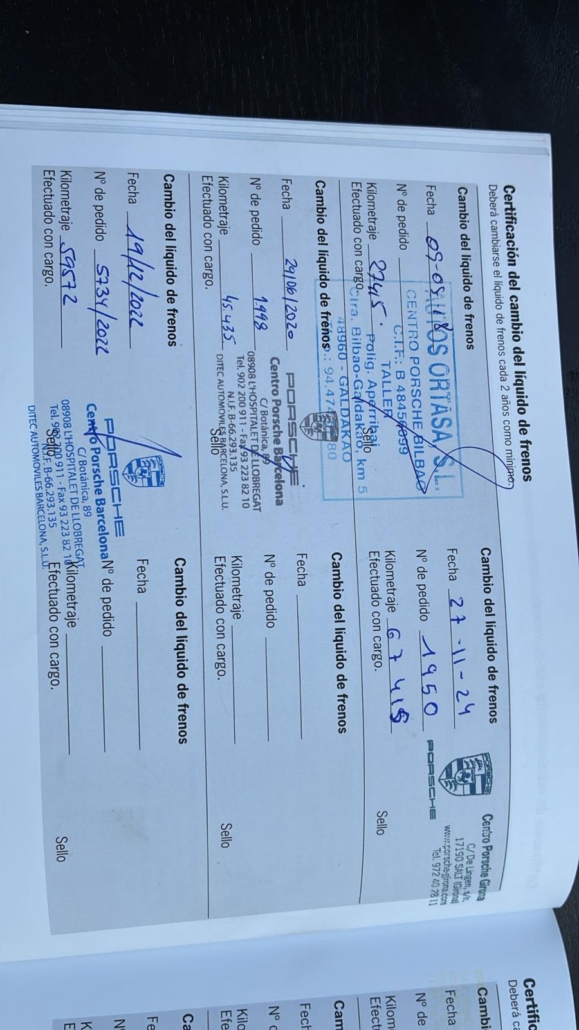 Certificación del cambio del líquido de frenos
Deberá cambiarse el líquido de frenos cada 2 años como mínimo.
Cambio del líquido de frenos
Fecha
Nº de pedido
Kilometraje 27145.
Efectuado con cargo.
Sello
AUTOS ORTASA, S.L.
CENTRO PORSCHE BILBAO
TALLER
Polig. Aperribai
Ctra. Bilbao-Galdakao, km 5
48960 - GALDAKAO
Cambio del líquido de frenos
Fecha 29/06/2020
Nº de pedido 1998
Kilometraje 45.435
Efectuado con cargo.
Sello
PORSCHE
Centro Porsche Barcelona
C/ Botánica, 89
08908 L'HOSPITALET DE LLOBREGAT
Tel. 902 200 911 - Fax 93 223 82 10
N.I.F. B-66.293.135
DITEC AUTOMOVILES BARCELONA, S.L.U.
Cambio del líquido de frenos
Fecha 19/12/2022
Nº de pedido 5734/2022
Kilometraje 59572
Efectuado con cargo.
Sello
PORSCHE
Centro Porsche Barcelona
C/ Botánica, 89
08908 L'HOSPITALET DE LLOBREGAT
Tel. 902 200 911 - Fax 93 223 82 10
N.I.F. B-66.293.135
DITEC AUTOMOVILES BARCELONA, S.L.U.
Cambio del líquido de frenos
Fecha 27-11-24
Nº de pedido 1950
Kilometraje 67415
Efectuado con cargo.
Sello
PORSCHE
Centro Porsche Girona
C/ De Lingen, s/n.
17190 SALT (Girona)
www.porsche-girona.com
Tel. 972 40 28 11
Cambio del líquido de frenos
Fecha
Nº de pedido
Kilometraje
Efectuado con cargo.
Sello
Cambio del líquido de frenos
Fecha
Nº de pedido
Kilometraje
Efectuado con cargo.
Sello